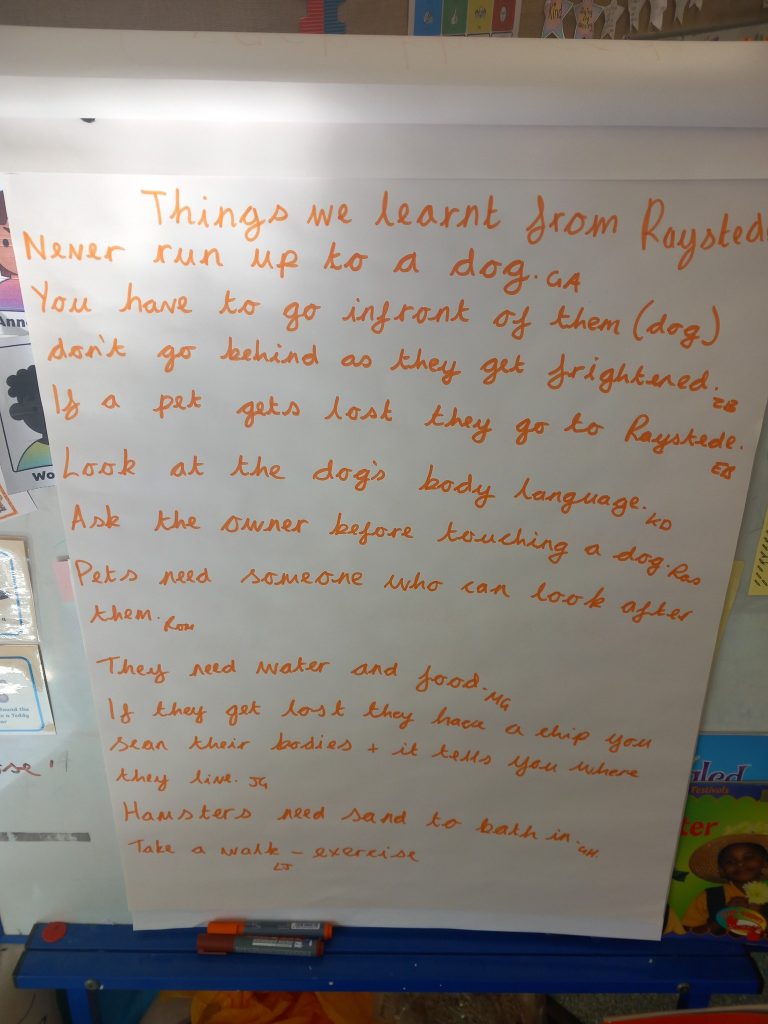 Things we learnt from Raystede
Never run up to a dog. GA
You have to go infront of them (dog)
don't go behind as they get frightened. ZB
If a pet gets lost they go to Raystede.
EB
Look at the dog's body language. KD
Ask the owner before touching a dog. Ras
Pets need someone who can look after
them. Rom
They need water and food. MG
If they get lost they have a chip you
scan their bodies + it tells you where
they live. JG
Hamsters need sand to bath in. GH.
Take a walk - exercise
LJ
Ann
Wo
Festivals